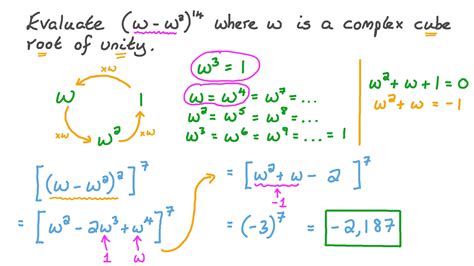 Evaluate (ω - ω²)¹⁴ where ω is a complex cube
root of unity.
ω³ = 1
xω
ω
1
xω
xω
ω²
ω = ω⁴ = ω⁷ = ...
ω² = ω⁵ = ω⁸ = ...
ω³ = ω⁶ = ω⁹ = ... = 1
ω² + ω + 1 = 0
ω² + ω = -1
[(ω - ω²)²]⁷
= [ω² - 2ω³ + ω⁴]⁷
1 ω
= [ω² + ω - 2]⁷
-1
= (-3)⁷ = -2,187